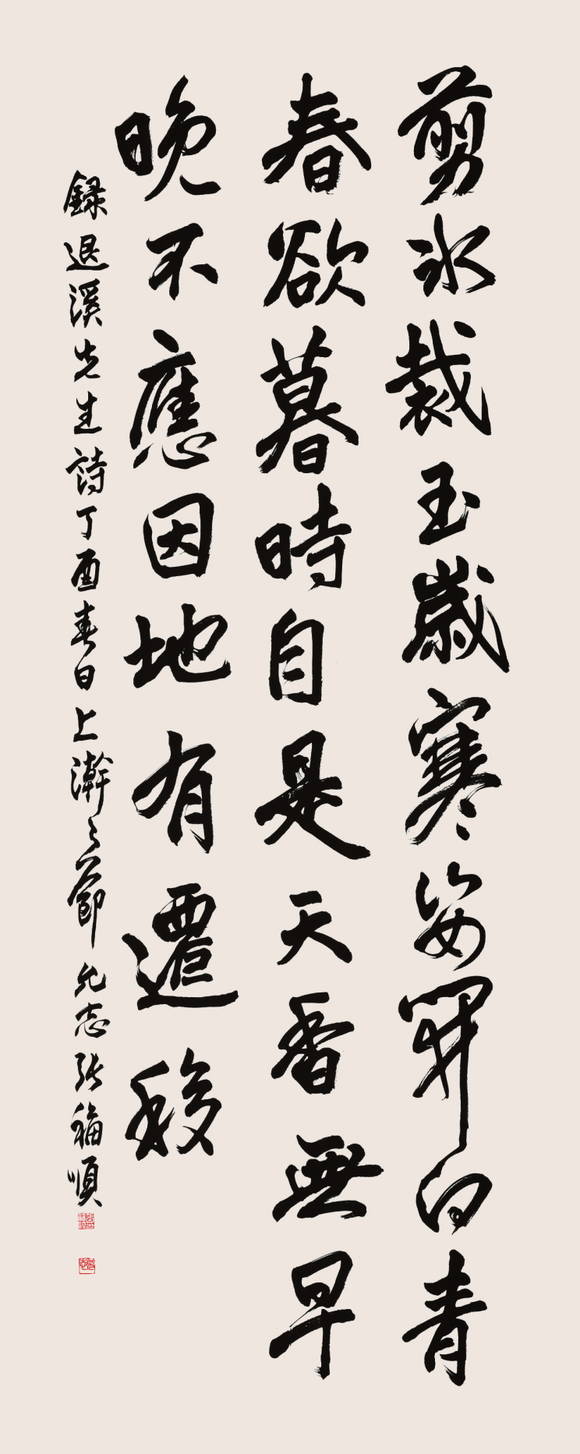 剪氷裁玉歲寒姿開向青
春欲暮時自是天香無早
晚不應因地有遷移
録退溪先生詩丁酉春日上澣之節 允志張福順